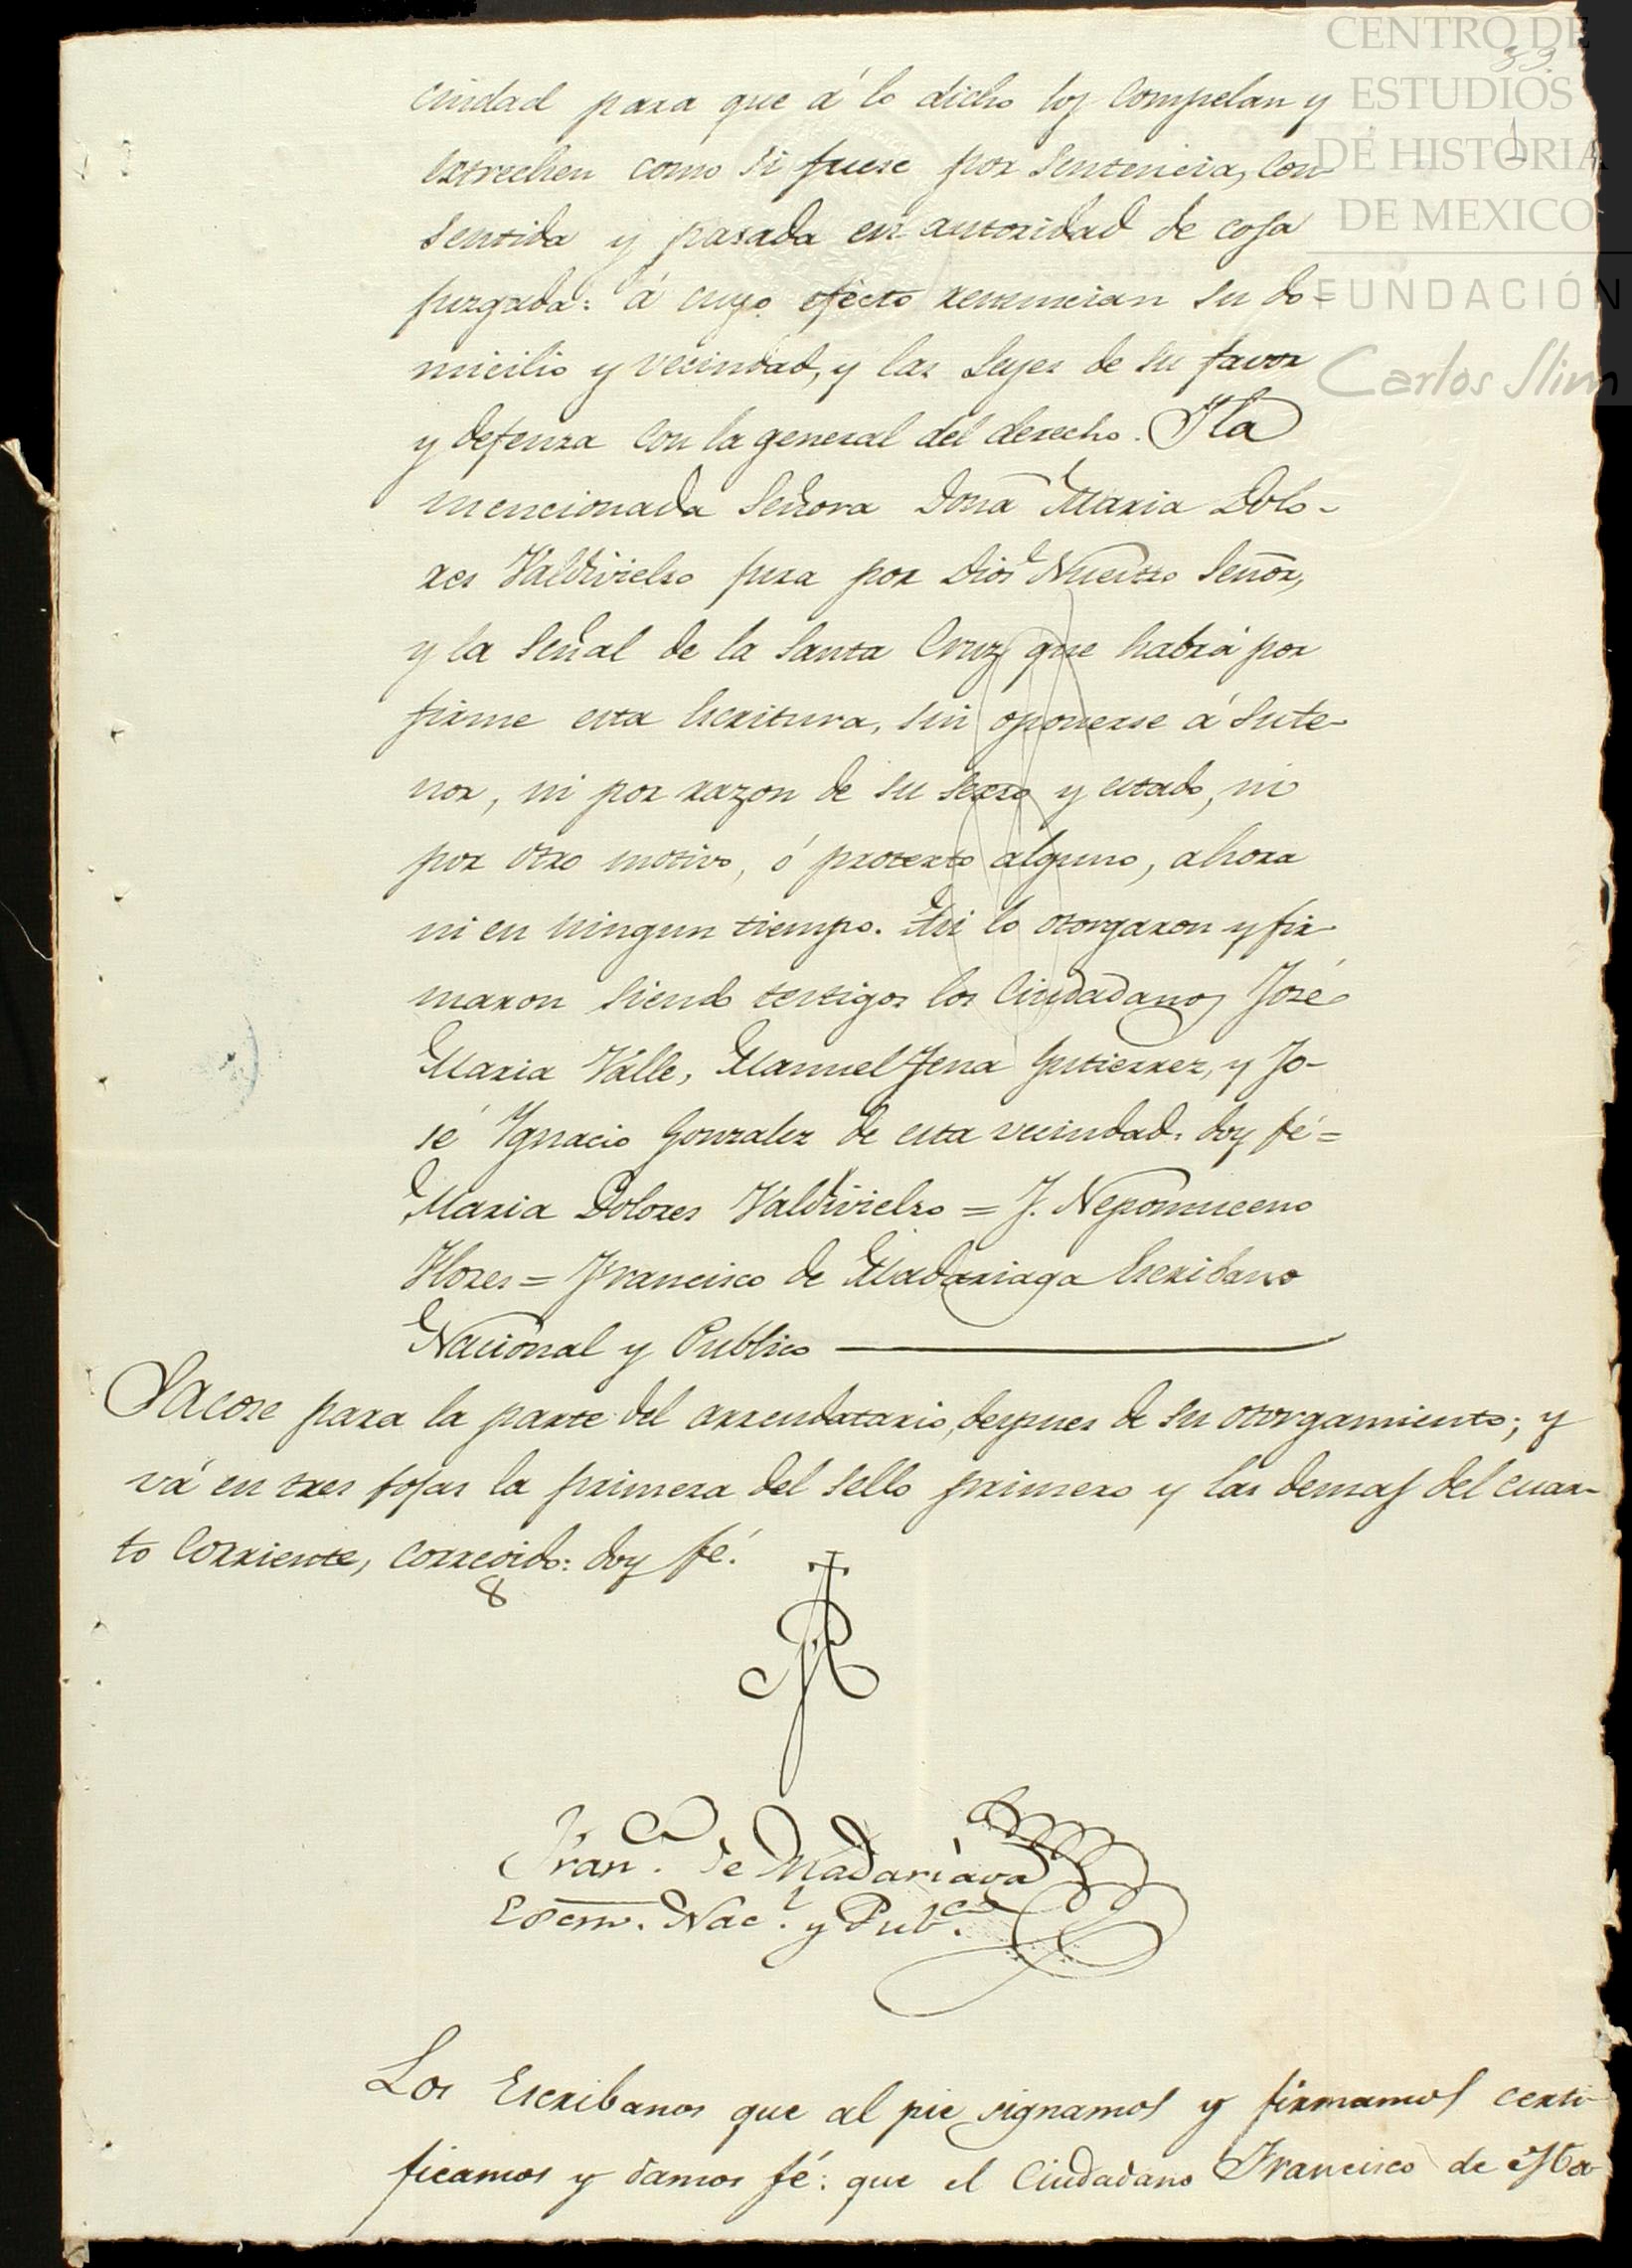 CENTRO DE
ESTUDIOS
DE HISTORIA
DE MEXICO
FUNDACIÓN
Carlos Slim
33.
ciudad para que á lo dicho los compelan y
estrechen como si fuese por Sentencia, con-
sentida y pasada en autoridad de cosa
juzgada: á cuyo efecto renuncian su do=
micilio y vecindad, y las Leyes de su favor
y defenza con la general del derecho. Y la
mencionada Señora Doña Maria Dolo-
res Valdivielso jura por Dios Nuestro Señor,
y la Señal de la Santa Cruz que habrá por
firme esta Escritura, sin oponerse á su te-
nor, ni por razon de su sexso y estado, ni
por otro motivo, ó protexto alguno, ahora
ni en ningun tiempo. Asi lo otorgaron y fir-
maron siendo testigos los Ciudadanos José
Maria Valle, Manuel Jena Gutierrez, y Jo-
sé Ygnacio Gonzalez de esta vecindad: doy fé=
Maria Dolores Valdivielso = J. Nepomuceno
Flores = Francisco de Madariaga Escribano
Nacional y Publico
Sacose para la parte del arrendatario, despues de su otorgamiento; y
vá en tres fojas la primera del sello primero y las demas del cuar-
to corriente, corregido: doy fé.
Fran.co de Madariaga
Escno. Nac.l y Pub.co
Los Escribanos que al pie signamos y firmamos certi-
ficamos y damos fé: que el Ciudadano Francisco de Ma-